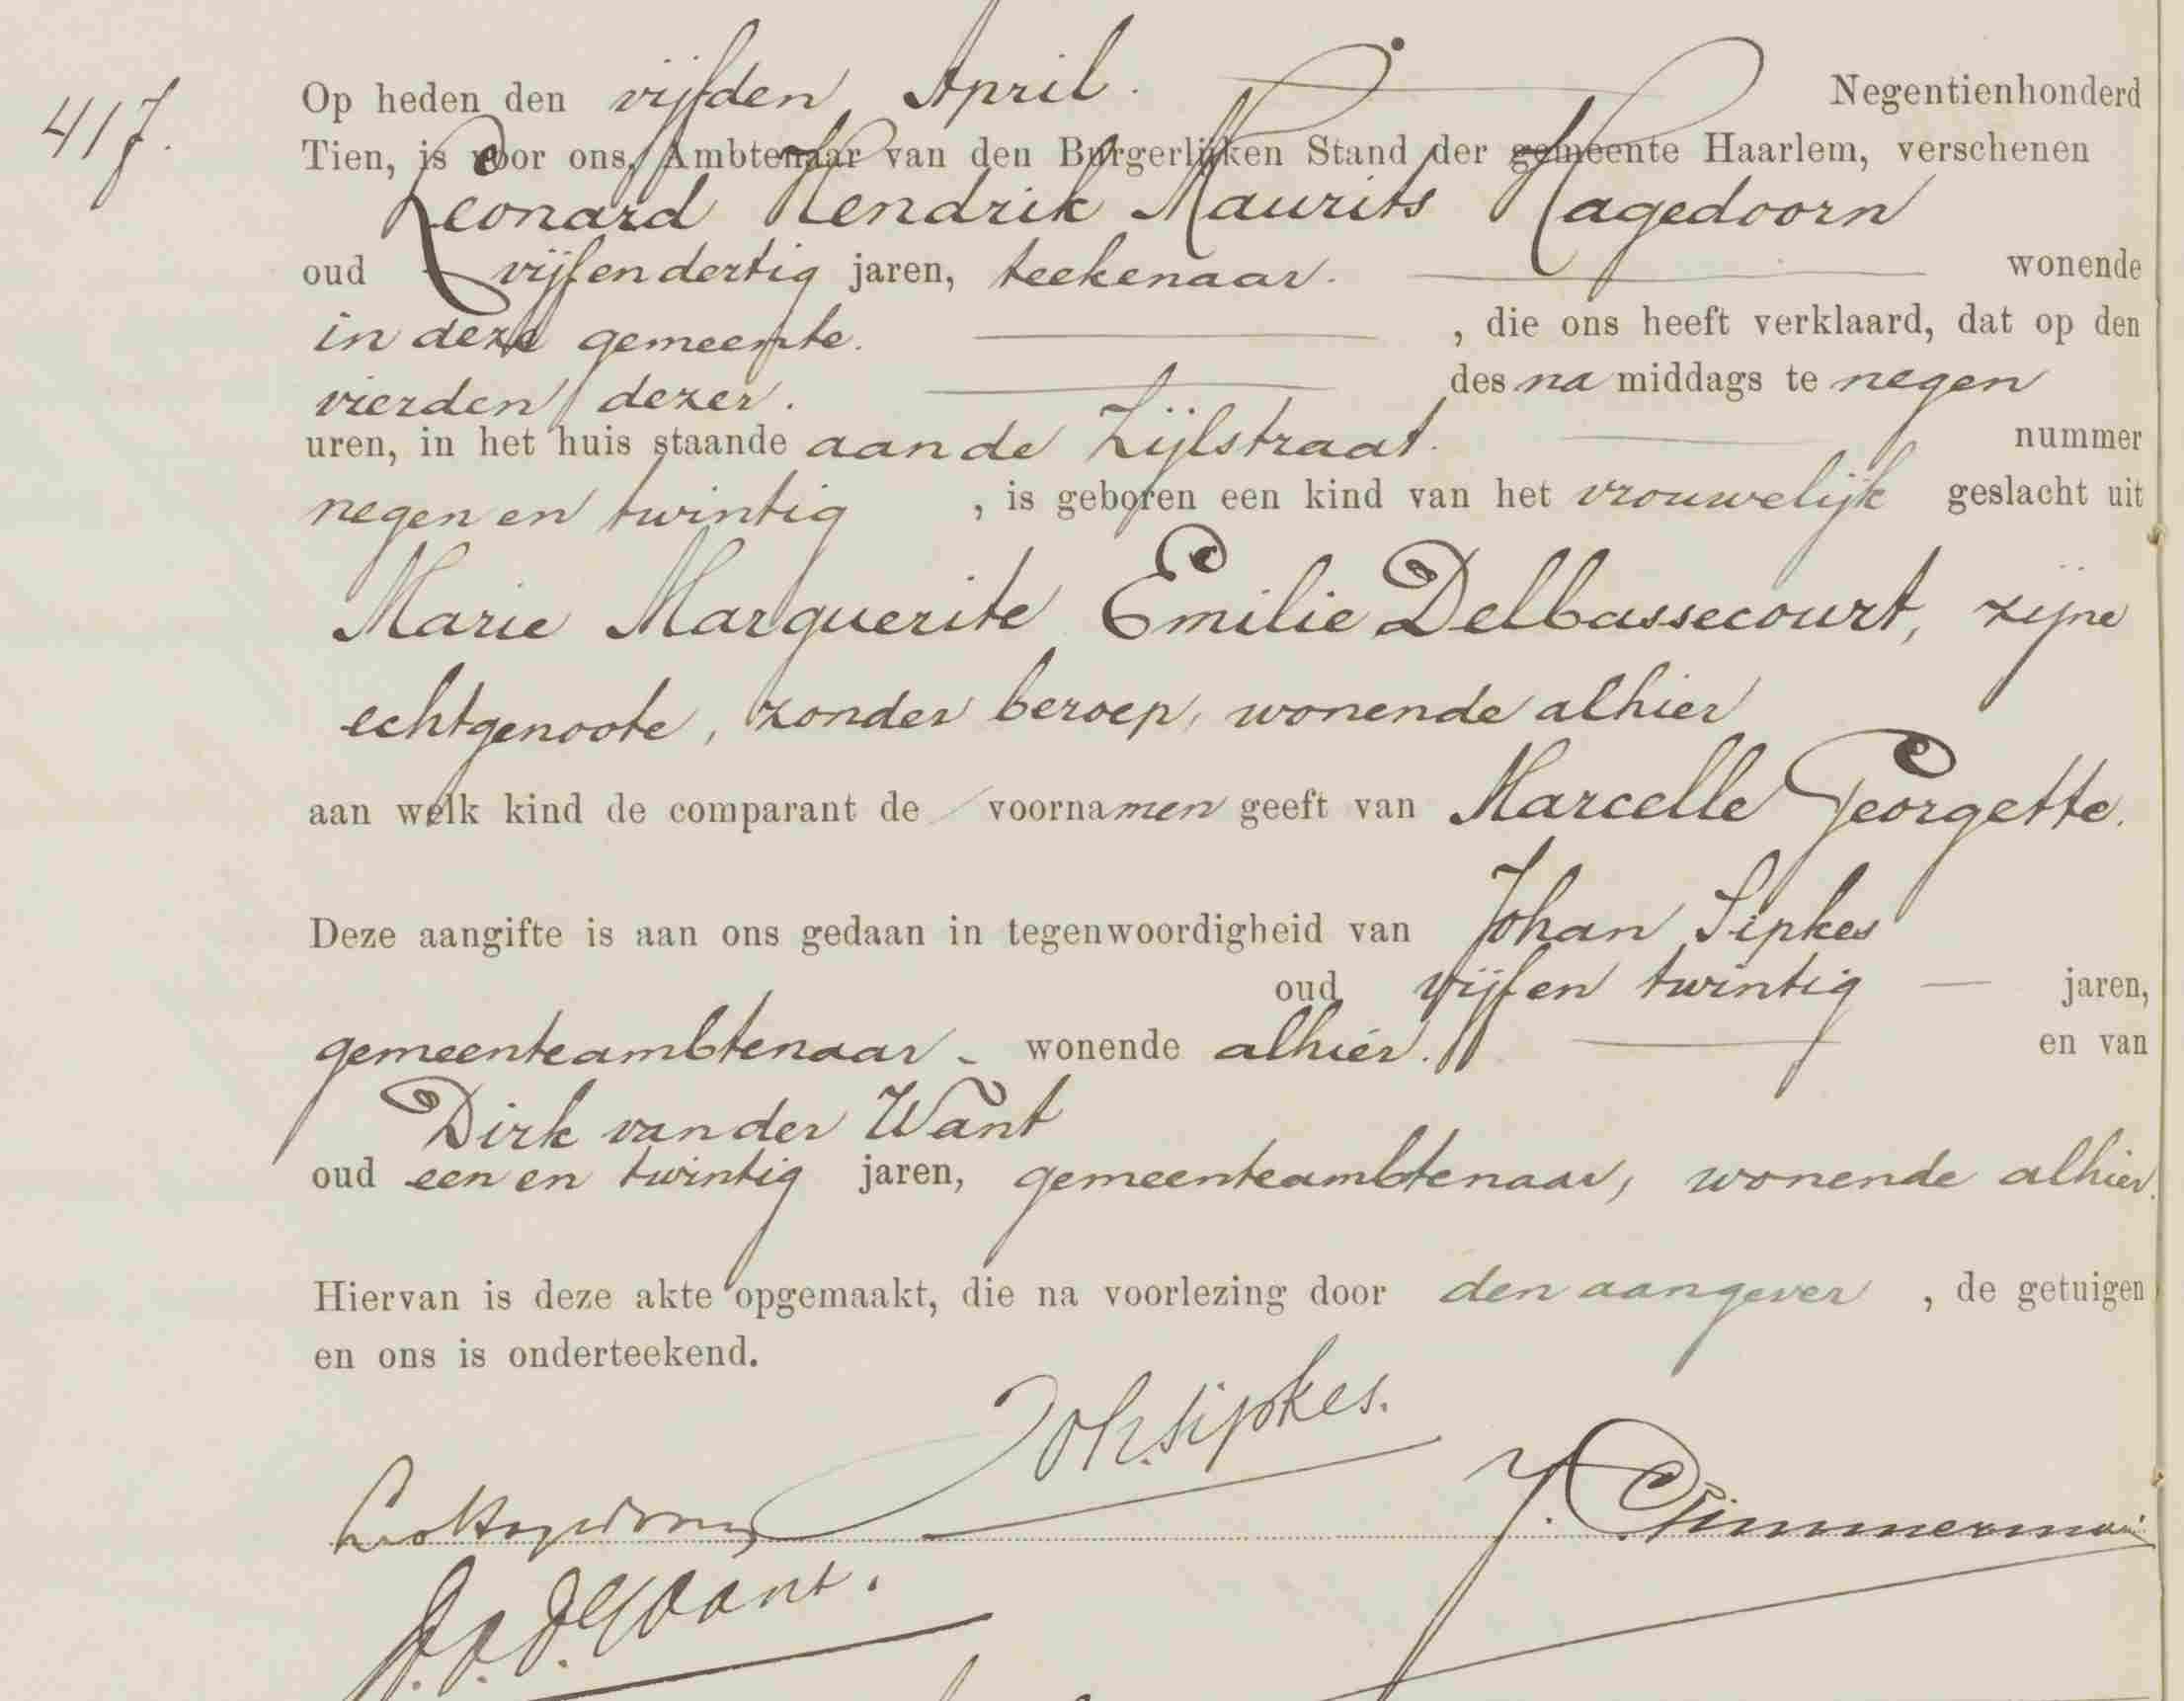 417.
Op heden den vijfden April. Negentienhonderd
Tien, is voor ons, Ambtenaar van den Burgerlijken Stand der gemeente Haarlem, verschenen
Leonard Hendrik Maurits Hagedoorn
oud vijfendertig jaren, teekenaar. wonende
in deze gemeente. , die ons heeft verklaard, dat op den
vierden dezer. des na middags te negen
uren, in het huis staande aan de Zijlstraat. nummer
negen en twintig , is geboren een kind van het vrouwelijk geslacht uit
Marie Marguerite Emilie Delbassecourt, zijne
echtgenoote, zonder beroep, wonende alhier
aan welk kind de comparant de voornamen geeft van Marcelle Georgette.
Deze aangifte is aan ons gedaan in tegenwoordigheid van Johan Sipkes
oud vijf en twintig — jaren,
gemeenteambtenaar - wonende alhier. en van
Dirk van der Want
oud een en twintig jaren, gemeenteambtenaar, wonende alhier.
Hiervan is deze akte opgemaakt, die na voorlezing door den aangever , de getuigen
en ons is onderteekend.
Joh. Sipkes.
Leo Hagedoorn
D. v. d. Want.